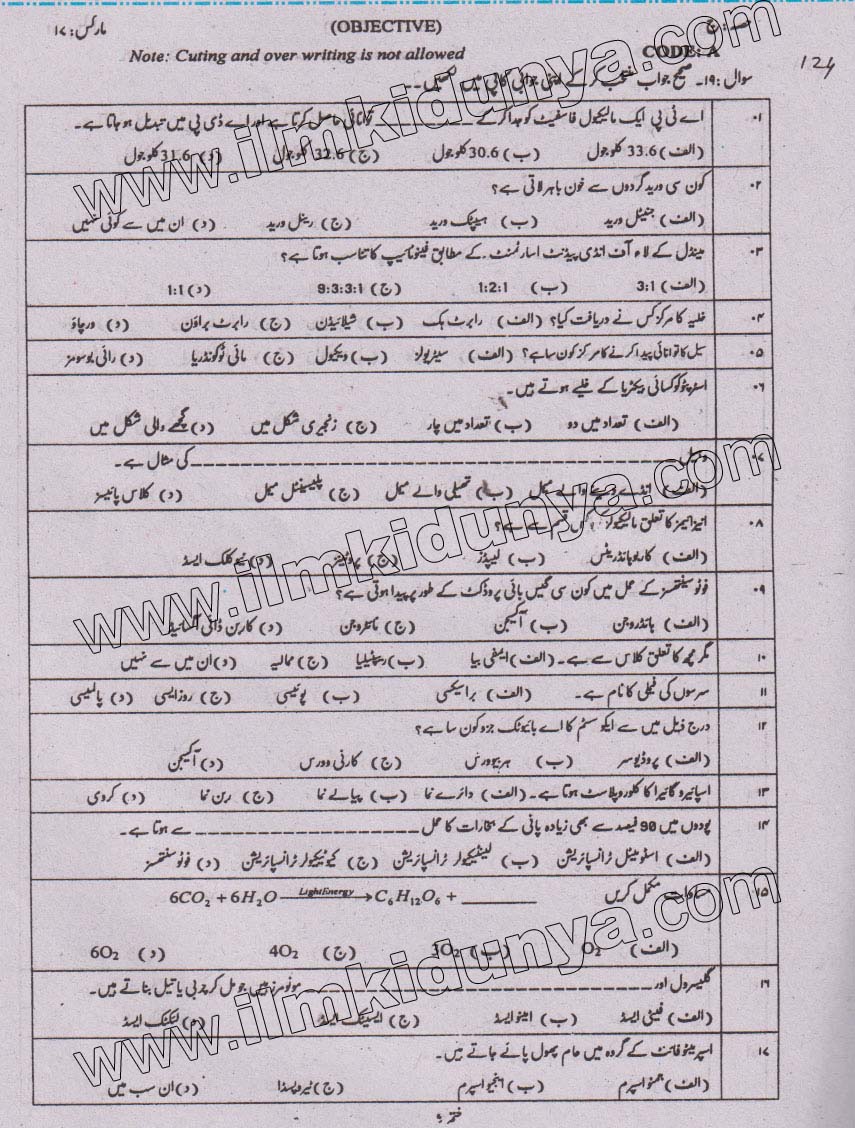 حصہ: ج (OBJECTIVE) مارکس: ۱۷
Note: Cuting and over writing is not allowed CODE: A
124
سوال :۱۹۔ صحیح جواب منتخب کر کے اپنی جوابی کاپی میں لکھیں ۔۔
۰۱ اے ٹی پی ایک مالیکیول فاسفیٹ کو جدا کر کے ________ توانائی حاصل کرتا ہے اور اے ڈی پی میں تبدیل ہو جاتا ہے۔
(الف) 33.6 کلو جول (ب) 30.6 کلو جول (ج) 32.6 کلو جول (د) 31.6 کلو جول
۰۲ کون سی ورید گردوں سے خون باہر لاتی ہے؟
(الف) جنیٹل ورید (ب) ہیپٹک ورید (ج) رینل ورید (د) ان میں سے کوئی نہیں
۰۳ مینڈل کے لاء آف انڈی پینڈنٹ اسارٹمنٹ کے مطابق فینوٹائیپ کا تناسب ہوتا ہے؟
(الف) 3:1 (ب) 1:2:1 (ج) 9:3:3:1 (د) 1:1
۰۴ خلیہ کا مرکز کس نے دریافت کیا؟ (الف) رابرٹ ہک (ب) شیلائیڈن (ج) رابرٹ براؤن (د) ورچاؤ
۰۵ سیل کا توانائی پیدا کرنے کا مرکز کون سا ہے؟ (الف) سینٹریولز (ب) ویکیول (ج) مائی ٹوکونڈریا (د) رائی بوسومز
۰۶ اسٹرپٹوکوکسائی بیکٹریا کے خلیے ہوتے ہیں۔
(الف) تعداد میں دو (ب) تعداد میں چار (ج) زنجیری شکل میں (د) گچھے والی شکل میں
۰۷ وہیل ________ کی مثال ہے۔
(الف) انڈے دینے والے میمل (ب) تھیلی والے میمل (ج) پلیسینٹل میمل (د) کلاس پائیسز
۰۸ انزائیمز کا تعلق مالیکیولز کس قسم سے ہے؟
(الف) کاربوہائڈریٹس (ب) لیپڈز (ج) پروٹینز (د) نیوکلک ایسڈ
۰۹ فوٹو سینتھسز کے عمل میں کون سی گیس بائی پروڈکٹ کے طور پر پیدا ہوتی ہے؟
(الف) ہائڈروجن (ب) آکسیجن (ج) نائٹروجن (د) کاربن ڈائی آکسائیڈ
۱۰ مگر مچھ کا تعلق کلاس سے ہے۔ (الف) ایمفی بیا (ب) ریپٹیلیا (ج) ممالیہ (د) ان میں سے نہیں
۱۱ سرسوں کی فیملی کا نام ہے۔ (الف) براسیکسی (ب) پوئیسی (ج) روزایسی (د) پالمیسی
۱۲ درج ذیل میں سے ایکو سسٹم کا اے بائیوٹک جزو کون سا ہے؟
(الف) پروڈیوسر (ب) ہربیوورس (ج) کارنی وورس (د) آکسیجن
۱۳ اسپائیروگائیرا کا کلوروپلاسٹ ہوتا ہے۔ (الف) دائرے نما (ب) پیالے نما (ج) ربن نما (د) کروی
۱۴ پودوں میں 90 فیصد سے بھی زیادہ پانی کے بخارات کا عمل ________ سے ہوتا ہے۔
(الف) اسٹومیٹل ٹرانسپائریشن (ب) لینٹیکیولر ٹرانسپائریشن (ج) کیوٹیکیولر ٹرانسپائریشن (د) فوٹو سنتھسز
۱۵ مساوات مکمل کریں 6CO2 + 6H2O —LightEnergy→ C6H12O6 + ________
(الف) O2 (ب) 3O2 (ج) 4O2 (د) 6O2
۱۶ گلیسرول اور ________ مونومرز ہیں جو مل کر چربی یا تیل بناتے ہیں۔
(الف) فیٹی ایسڈ (ب) امینو ایسڈ (ج) ایسیٹک ایسڈ (د) لیکٹک ایسڈ
۱۷ اسپرمیٹوفائٹ کے گروہ میں عام پھول پائے جاتے ہیں۔
(الف) جمنو اسپرم (ب) انجیو اسپرم (ج) ٹیروپسڈا (د) ان سب میں
ختم
www.ilmkidunya.com
www.ilmkidunya.com
www.ilmkidunya.com